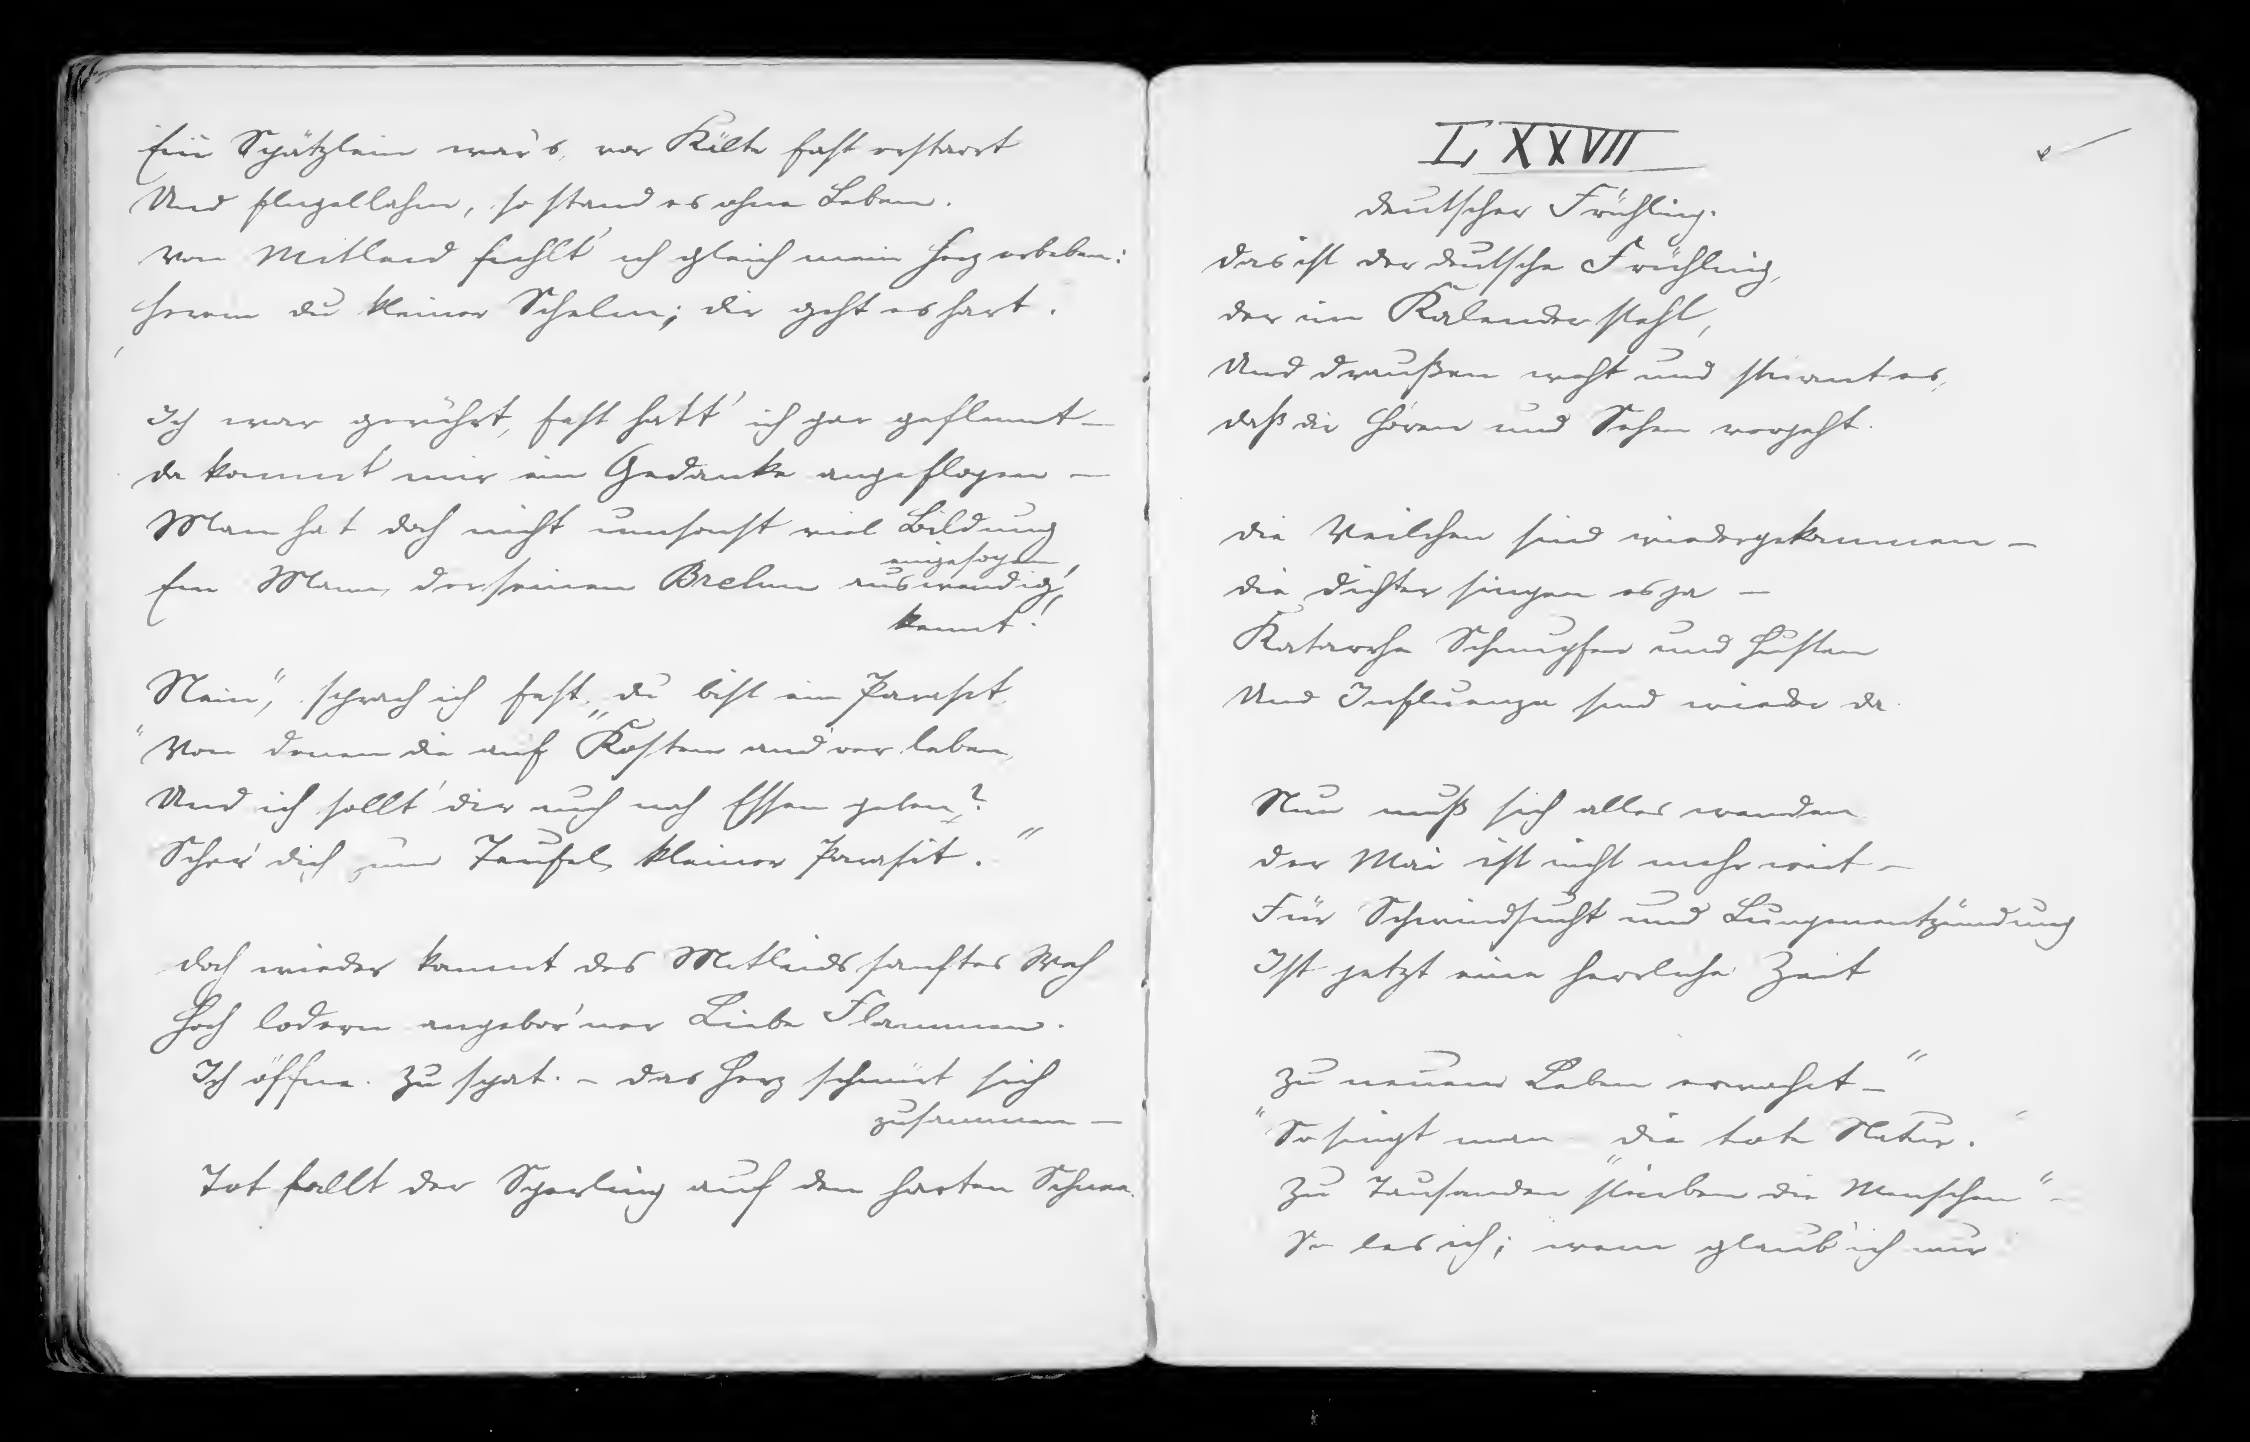 Ein Spätzlein war's, vor Kälte fast erstarrt
Und flügellahm, so stand es ohne Leben.
Von Mitleid fühlt' ich gleich mein Herz erbeben:
Herein du kleiner Schelm; dir geht es hart.
Ich war gerührt, fast hatt' ich gar geflennt –
da kommt mir ein Gedanke angeflogen –
Man hat doch nicht umsonst viel Bildung
eingesogen,
Ein Mann, der seinen Brehm auswendig
kennt!
Nein", sprach ich fest, „du bist ein Parasit,
"Von denen die auf Kosten and'rer leben,
Und ich sollt' dir auch noch Essen geben?
Scher' dich zum Teufel, kleiner Parasit."
doch wieder kommt des Mitleids sanftes Weh
Hoch lodern angebor'ner Liebe Flammen.
Ich öffne. Zu spät. – das Herz schnürt sich
zusammen –
Tot fällt der Sperling auf den harten Schnee.
LXXVII
deutscher Frühling.
das ist der deutsche Frühling,
der im Kalender steht,
Und draußen weht und stürmt es,
daß dir Hören und Sehen vergeht.
die Veilchen sind wiedergekommen –
die Dichter singen es ja –
Katarrhe Schnupfen und Husten
Und Influenza sind wieder da.
Nun muß sich alles wenden
der Mai ist nicht mehr weit –
Für Schwindsucht und Lungenentzündung
Ist jetzt eine herrliche Zeit
Zu neuem Leben erwachet –"
"So singt man die tote Natur.
Zu Tausenden "sterben die Menschen" –
So les ich; wem glaub' ich nur